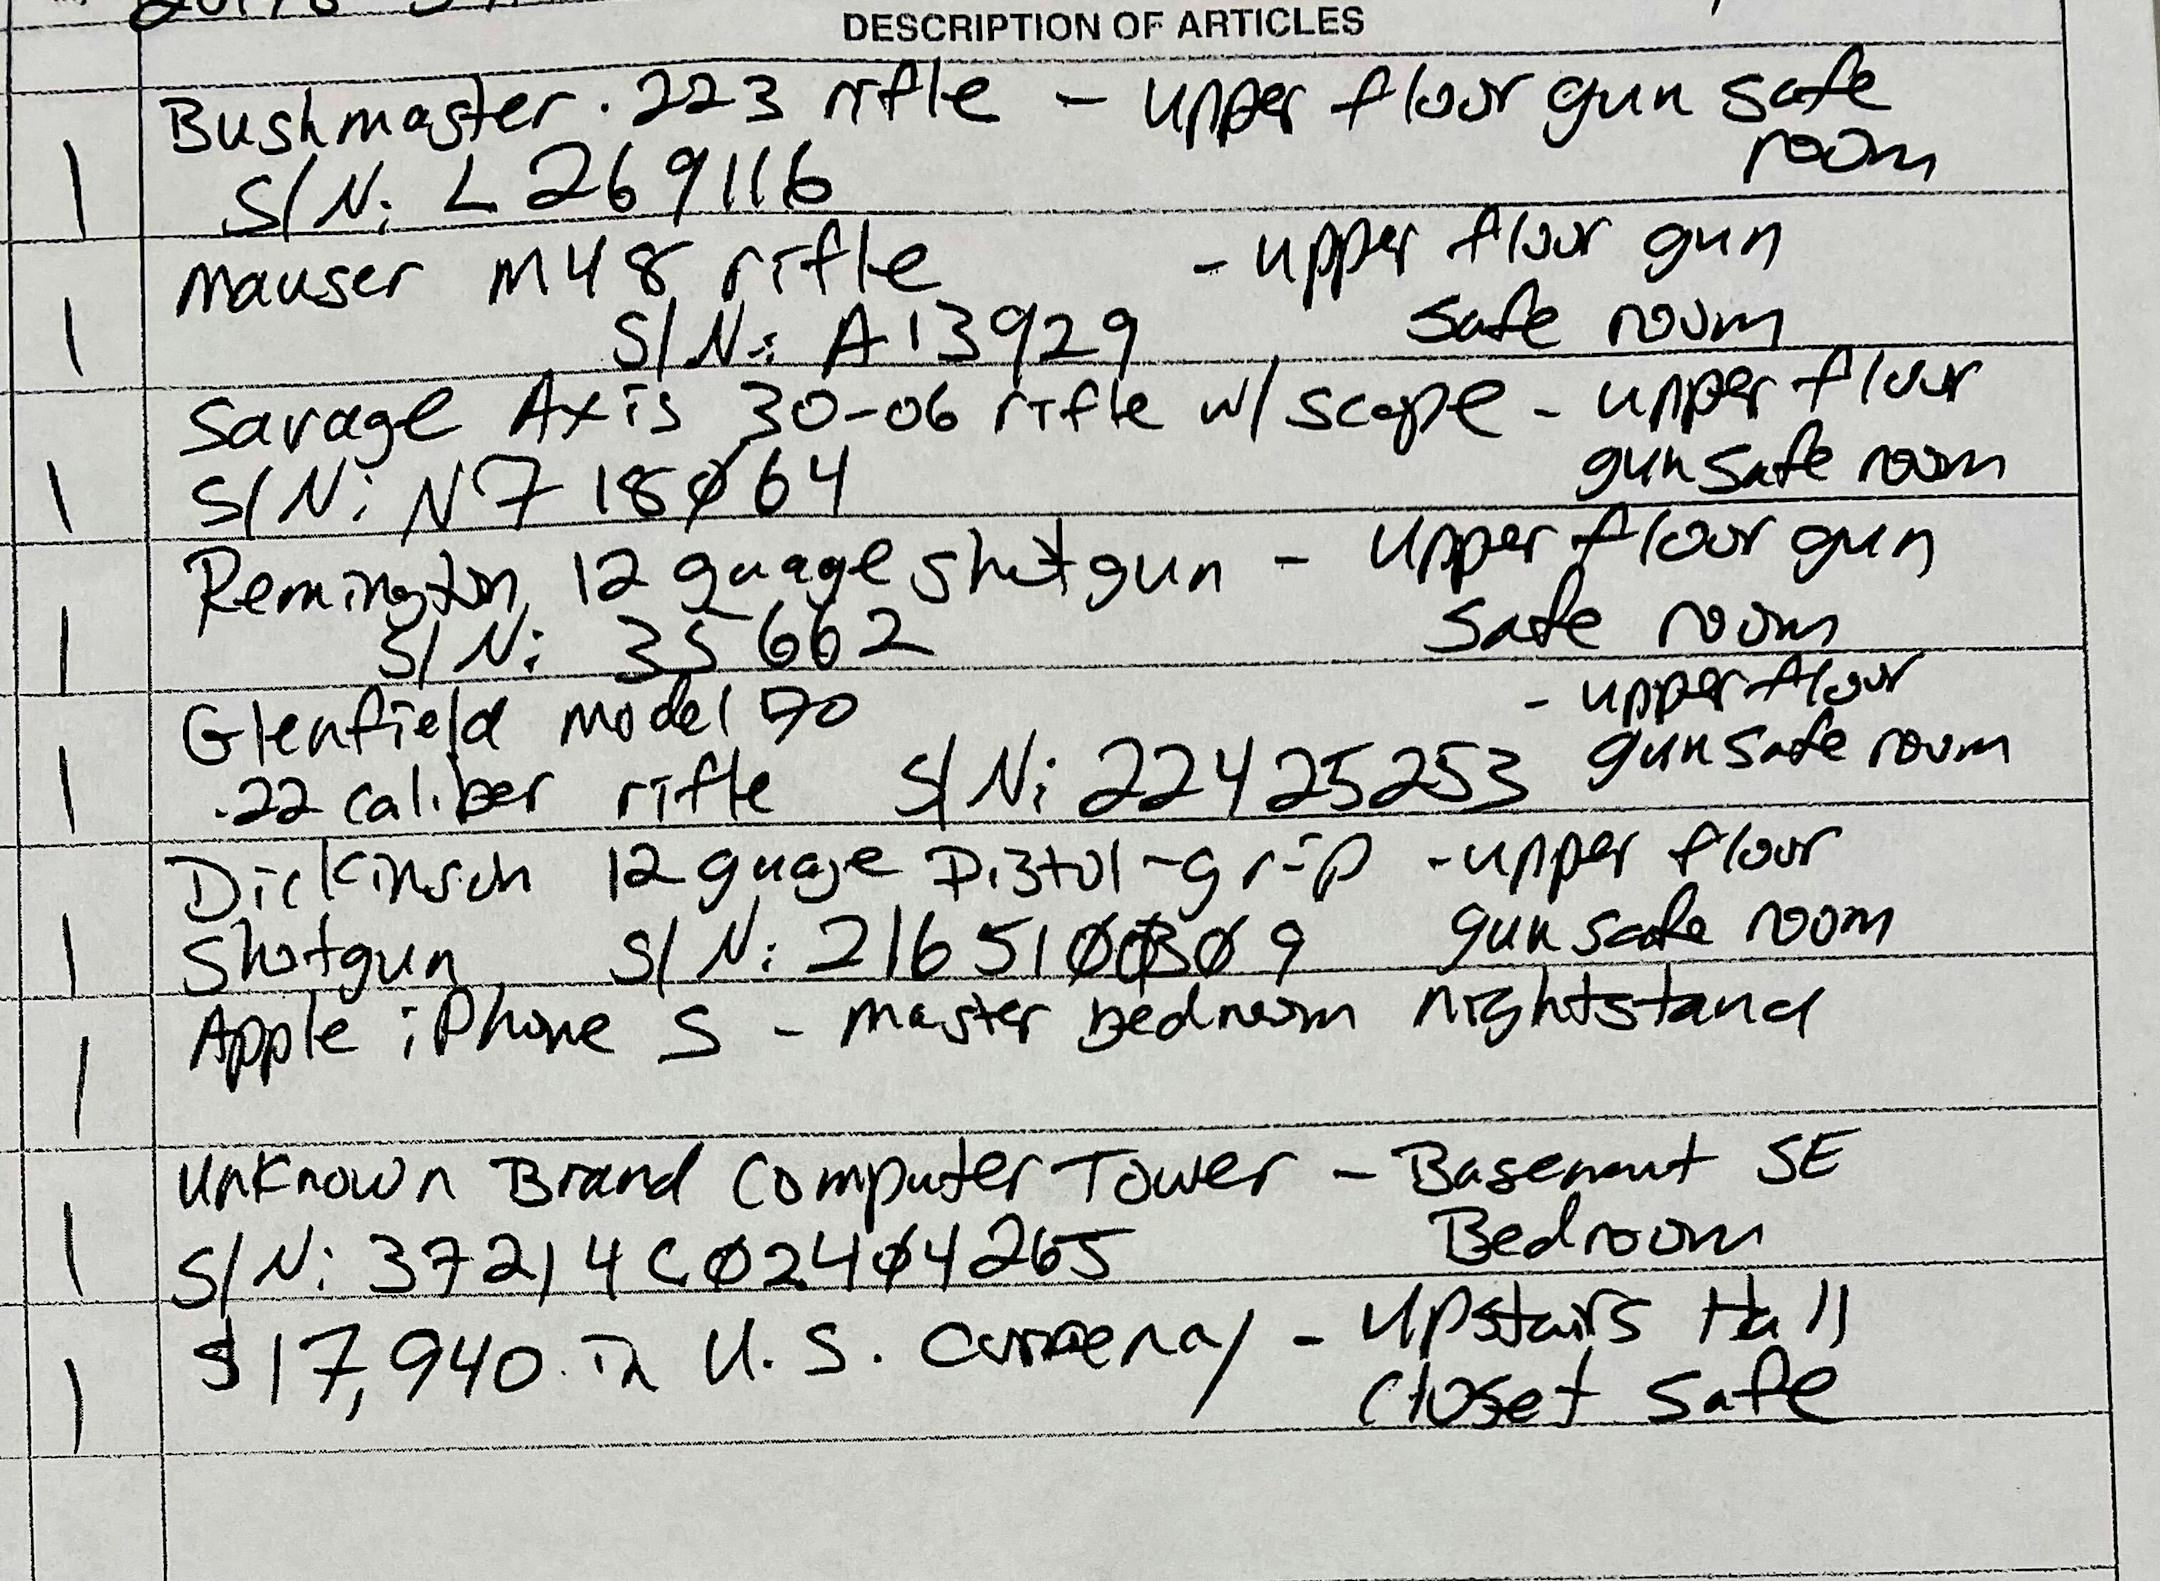 DESCRIPTION OF ARTICLES
1 Bushmaster .223 rifle - upper floor gun safe room
S/N: L269116
1 Mauser M48 rifle - upper floor gun safe room
S/N: A13929
1 Savage Axis 30-06 rifle w/ scope - upper floor gun safe room
S/N: N718Ø64
1 Remington 12 guage shotgun - upper floor gun safe room
S/N: 35662
1 Glenfield model 70 - upper floor gun safe room
.22 caliber rifle S/N: 22425253
1 Dickinson 12 guage Pistol-grip - upper floor gun safe room
Shotgun S/N: 21651ØØ3Ø9
1 Apple iPhone S - master bedroom nightstand
1 Unknown Brand Computer Tower - Basement SE Bedroom
S/N: 37214CØ24Ø4265
1 $17,940 in U.S. Currency - Upstairs Hall Closet Safe